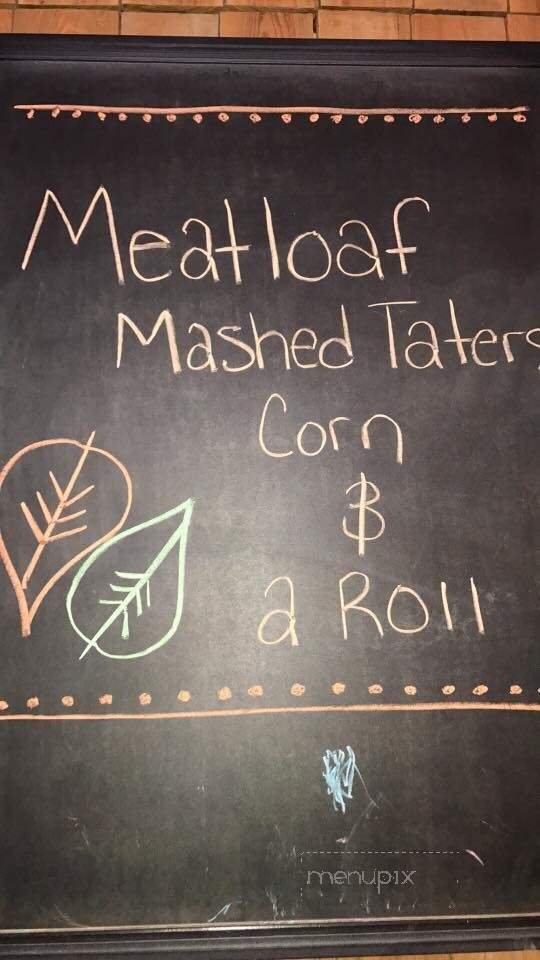 Meatloaf
Mashed Taters
Corn
&
a Roll
menupix